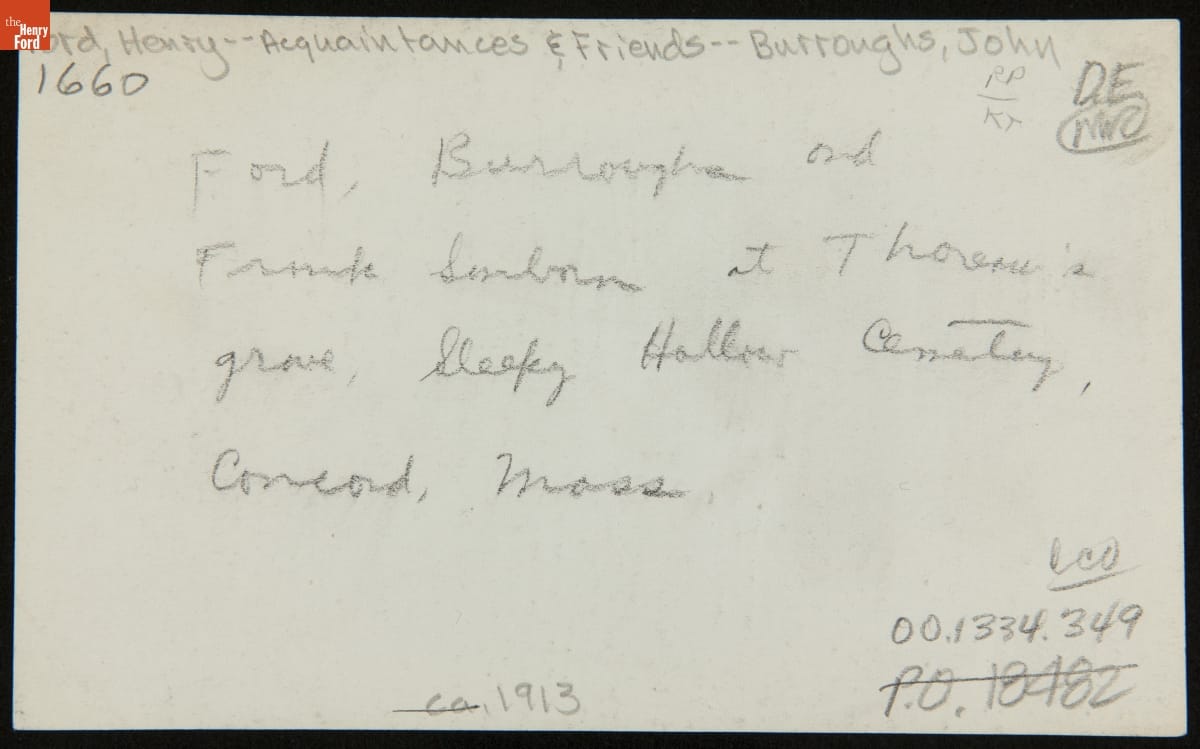 the Henry Ford
Ford, Henry--Acquaintances & Friends--Burroughs, John
1660
D.E.
Ford, Burroughs and
Frank Sanborn at Thoreau's
grave, Sleepy Hollow Cemetery,
Concord, Mass.
00.1334.349
P.O. 18482
ca. 1913